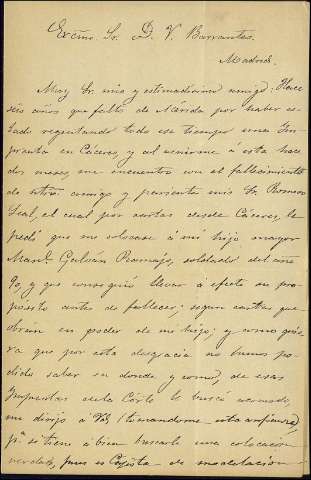 Excmo Sr. D. V. Barrantes.
Madrid.
Muy Sr. mio y estimadísimo amigo: Hace
seis años que falto de Mérida por haber es-
tado regentando todo ese tiempo una Im-
prenta en Cáceres, y al venirme á esta hace
dos meses me encuentro con el fallecimiento
de ntro. amigo y pariente mio Sr. Romero
Leal, el cual por cartas desde Cáceres, le
pedí que me colocase á mi hijo mayor
Man.l Galván Ramajo, soldado del año
90, y que consiguió llevar á efecto su pro-
pósito antes de fallecer; segun cartas que
obran en poder de mi hijo; y como quie-
ra que por esta desgracia no hemos po-
dido saber en donde y como, de esas
Imprentas de la Córte le buscó acomodo,
me dirijo á Vd, (tomandome esta confianza)
p.a si tiene á bien buscarle una colocación
verdad, pues es Cajista de modelacion